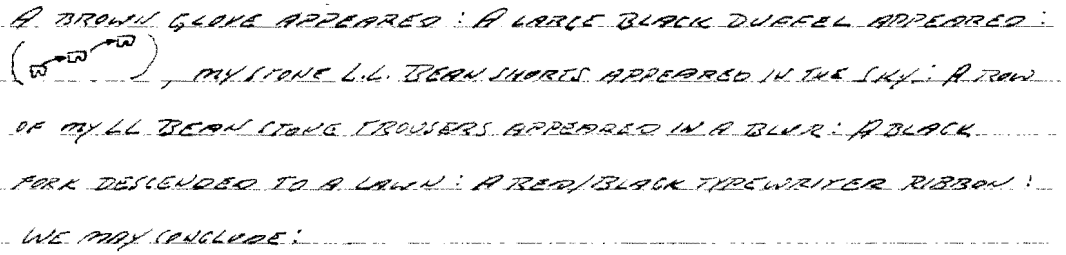 A BROWN GLOVE APPEARED : A LARGE BLACK DUFFEL APPEARED :
( ) , MY STONE L.L. BEAN SHORTS APPEARED IN THE SKY : A ROW
OF MY LL BEAN STONE TROUSERS APPEARED IN A BLUR : A BLACK
FORK DESCENDED TO A LAWN : A RED/BLACK TYPEWRITER RIBBON :
WE MAY CONCLUDE :